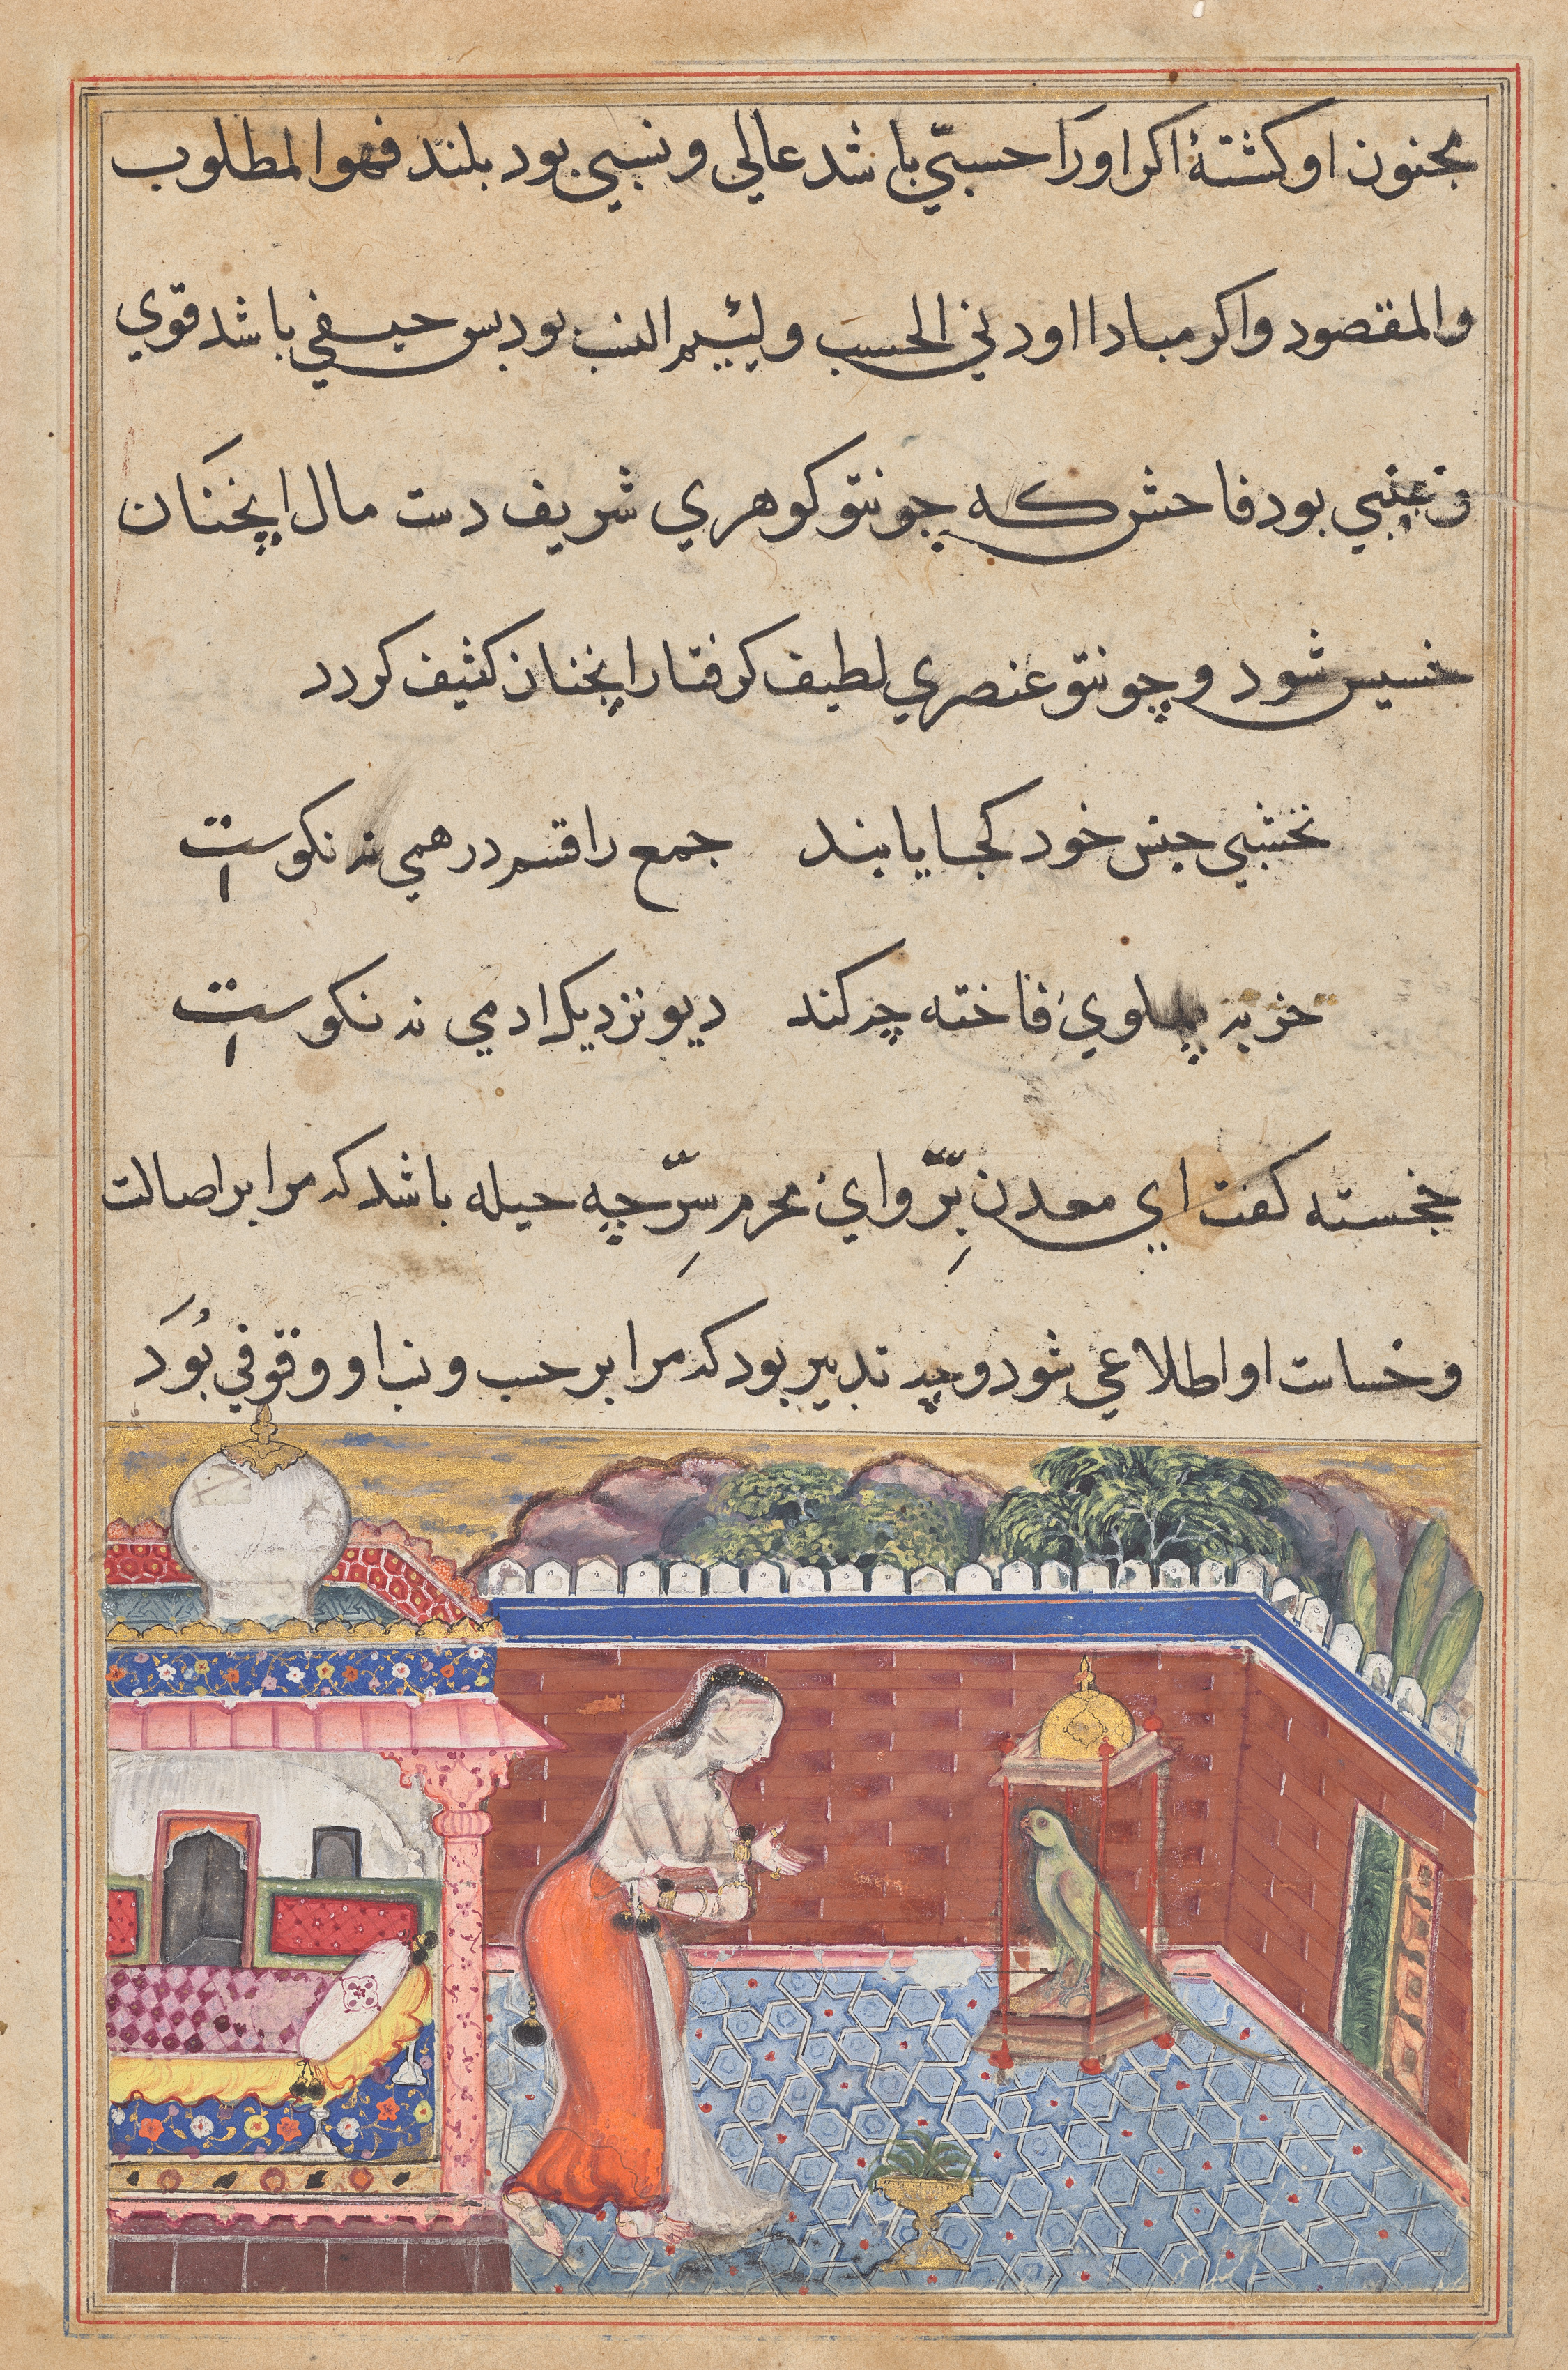 مجنون او كشتهٔ اكر او رَا حسبيّ با شد عالي و نسبي بود بلند فهو المطلوب
والمقصود واكر مبادا اودني الحسب و لئيم النسب بود بس حيفي با شد قوي
و غبني بود فاحش كه چونتو كوهري شريف دست مال اينچنَان
خسيس شود و چونتو عنصري لطيف كرفتار اينچنان كثيف كردد
نخشبي جنس خود كجا يابند جمع را قسم درهمي نه نكوست
خر به پهلوئ فاخته چه كند ديو نزديك ادمي نه نكوست
خجسته كفت اي معدن بِّر واي محرم سِّر چه حيله باشد كه مرا بر اصالت
و خساست او اطلاعي شود و چه تدبير بود كه مرا بر حسب و نسب او وقوفي بُوَد